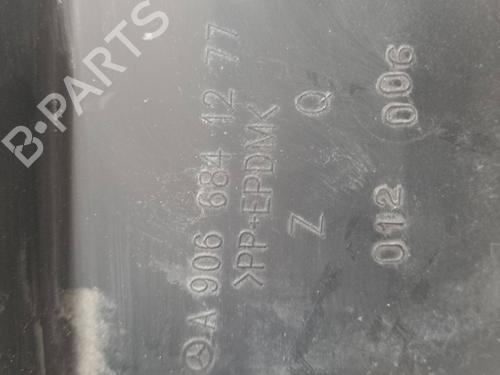 B-PARTS
A 906 684 12 77
>PP+EPDM<
Z Q
012 006